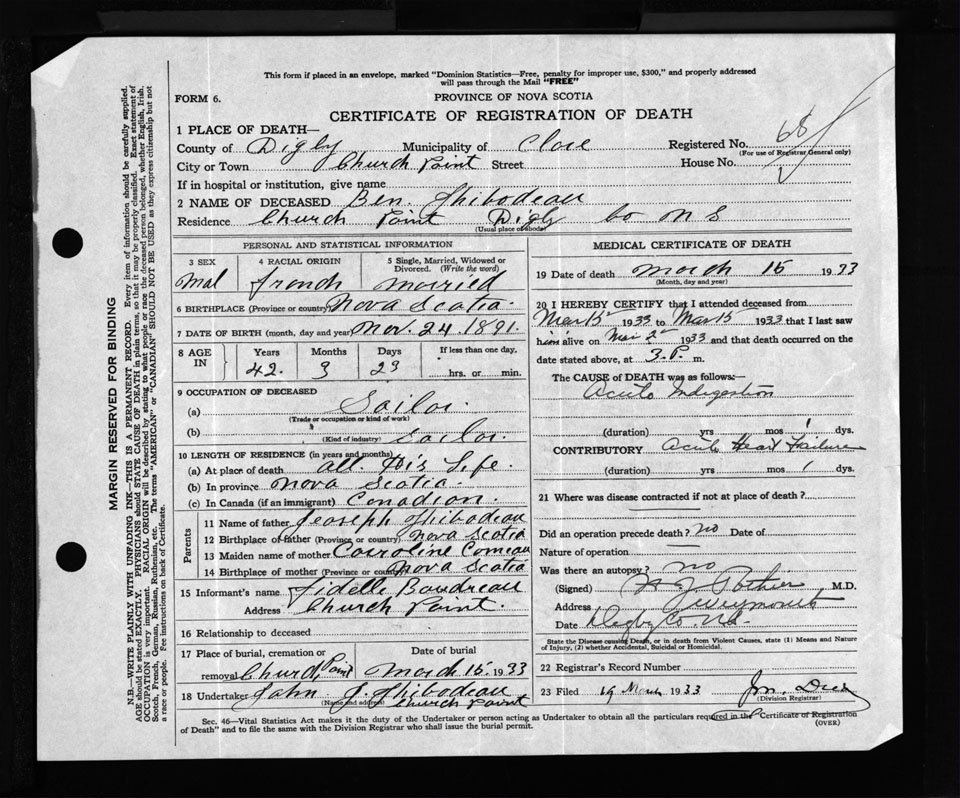 This form if placed in an envelope, marked "Dominion Statistics—Free, penalty for improper use, $300," and properly addressed
will pass through the Mail "FREE"
FORM 6.
PROVINCE OF NOVA SCOTIA
CERTIFICATE OF REGISTRATION OF DEATH
1 PLACE OF DEATH—
County of Digby Municipality of Clare Registered No. 68
(For use of Registrar General only)
City or Town Church Point Street House No.
If in hospital or institution, give name
2 NAME OF DECEASED Ben. Thibodeau
Residence Church Point Digby Co N S
(Usual place of abode)
PERSONAL AND STATISTICAL INFORMATION
3 SEX 4 RACIAL ORIGIN 5 Single, Married, Widowed or
Divorced. (Write the word)
Mal french married
6 BIRTHPLACE (Province or country) Nova Scotia
7 DATE OF BIRTH (month, day and year) Nov. 24. 1891.
8 AGE IN Years Months Days If less than one day,
42. 3 23 hrs. or min.
9 OCCUPATION OF DECEASED
(a) Sailor.
(Trade or occupation or kind of work)
(b) Sailor.
(Kind of industry)
10 LENGTH OF RESIDENCE (in years and months)
(a) At place of death all. His Life.
(b) In province Nova Scotia.
(c) In Canada (if an immigrant) Canadian.
Parents
11 Name of father Jeoseph Thibodeau
12 Birthplace of father (Province or country) Nova Scotia
13 Maiden name of mother Caroline Comeau
14 Birthplace of mother (Province or country) Nova Scotia
15 Informant's name Fidelle Boudreau
Address Church Point.
16 Relationship to deceased
17 Place of burial, cremation or Date of burial
removal Church Point March 15. 1933
18 Undertaker John J. Thibodeau
(Name and address) Church Point
MEDICAL CERTIFICATE OF DEATH
19 Date of death March 15 1933
(Month, day and year)
20 I HEREBY CERTIFY that I attended deceased from
Mar 15 1933 to Mar 15 1933 that I last saw
him alive on Mar 1933 and that death occurred on the
date stated above, at 3. P. m.
The CAUSE of DEATH was as follows:—
Acute Indigestion
(duration) yrs mos 1 dys.
CONTRIBUTORY Acute Heart Failure
(duration) yrs mos 1 dys.
21 Where was disease contracted if not at place of death?
Did an operation precede death? no Date of
Nature of operation
Was there an autopsy? no
(Signed) Pothier M.D.
Address Weymouth
Date Digby Co. N.S.
State the Disease causing Death, or in death from Violent Causes, state (1) Means and Nature
of Injury, (2) whether Accidental, Suicidal or Homicidal.
22 Registrar's Record Number
23 Filed 19 March 1933
(Division Registrar)
Sec. 46—Vital Statistics Act makes it the duty of the Undertaker or person acting as Undertaker to obtain all the particulars required in the "Certificate of Registration
of Death" and to file the same with the Division Registrar who shall issue the burial permit.
(OVER)
MARGIN RESERVED FOR BINDING
N.B.—WRITE PLAINLY WITH UNFADING INK—THIS IS A PERMANENT RECORD. Every item of information should be carefully supplied.
AGE should be stated EXACTLY. PHYSICIANS should STATE CAUSE OF DEATH in plain terms, so that it may be properly classified. Exact statement of
OCCUPATION is very important. RACIAL ORIGIN will be described by stating to what people or race the deceased person belonged, whether English, Irish,
Scotch, French, German, Russian, Ruthenian, etc. The terms "AMERICAN" or "CANADIAN" SHOULD NOT BE USED as they express citizenship but not
a race or people. Fee instructions on back of Certificate.